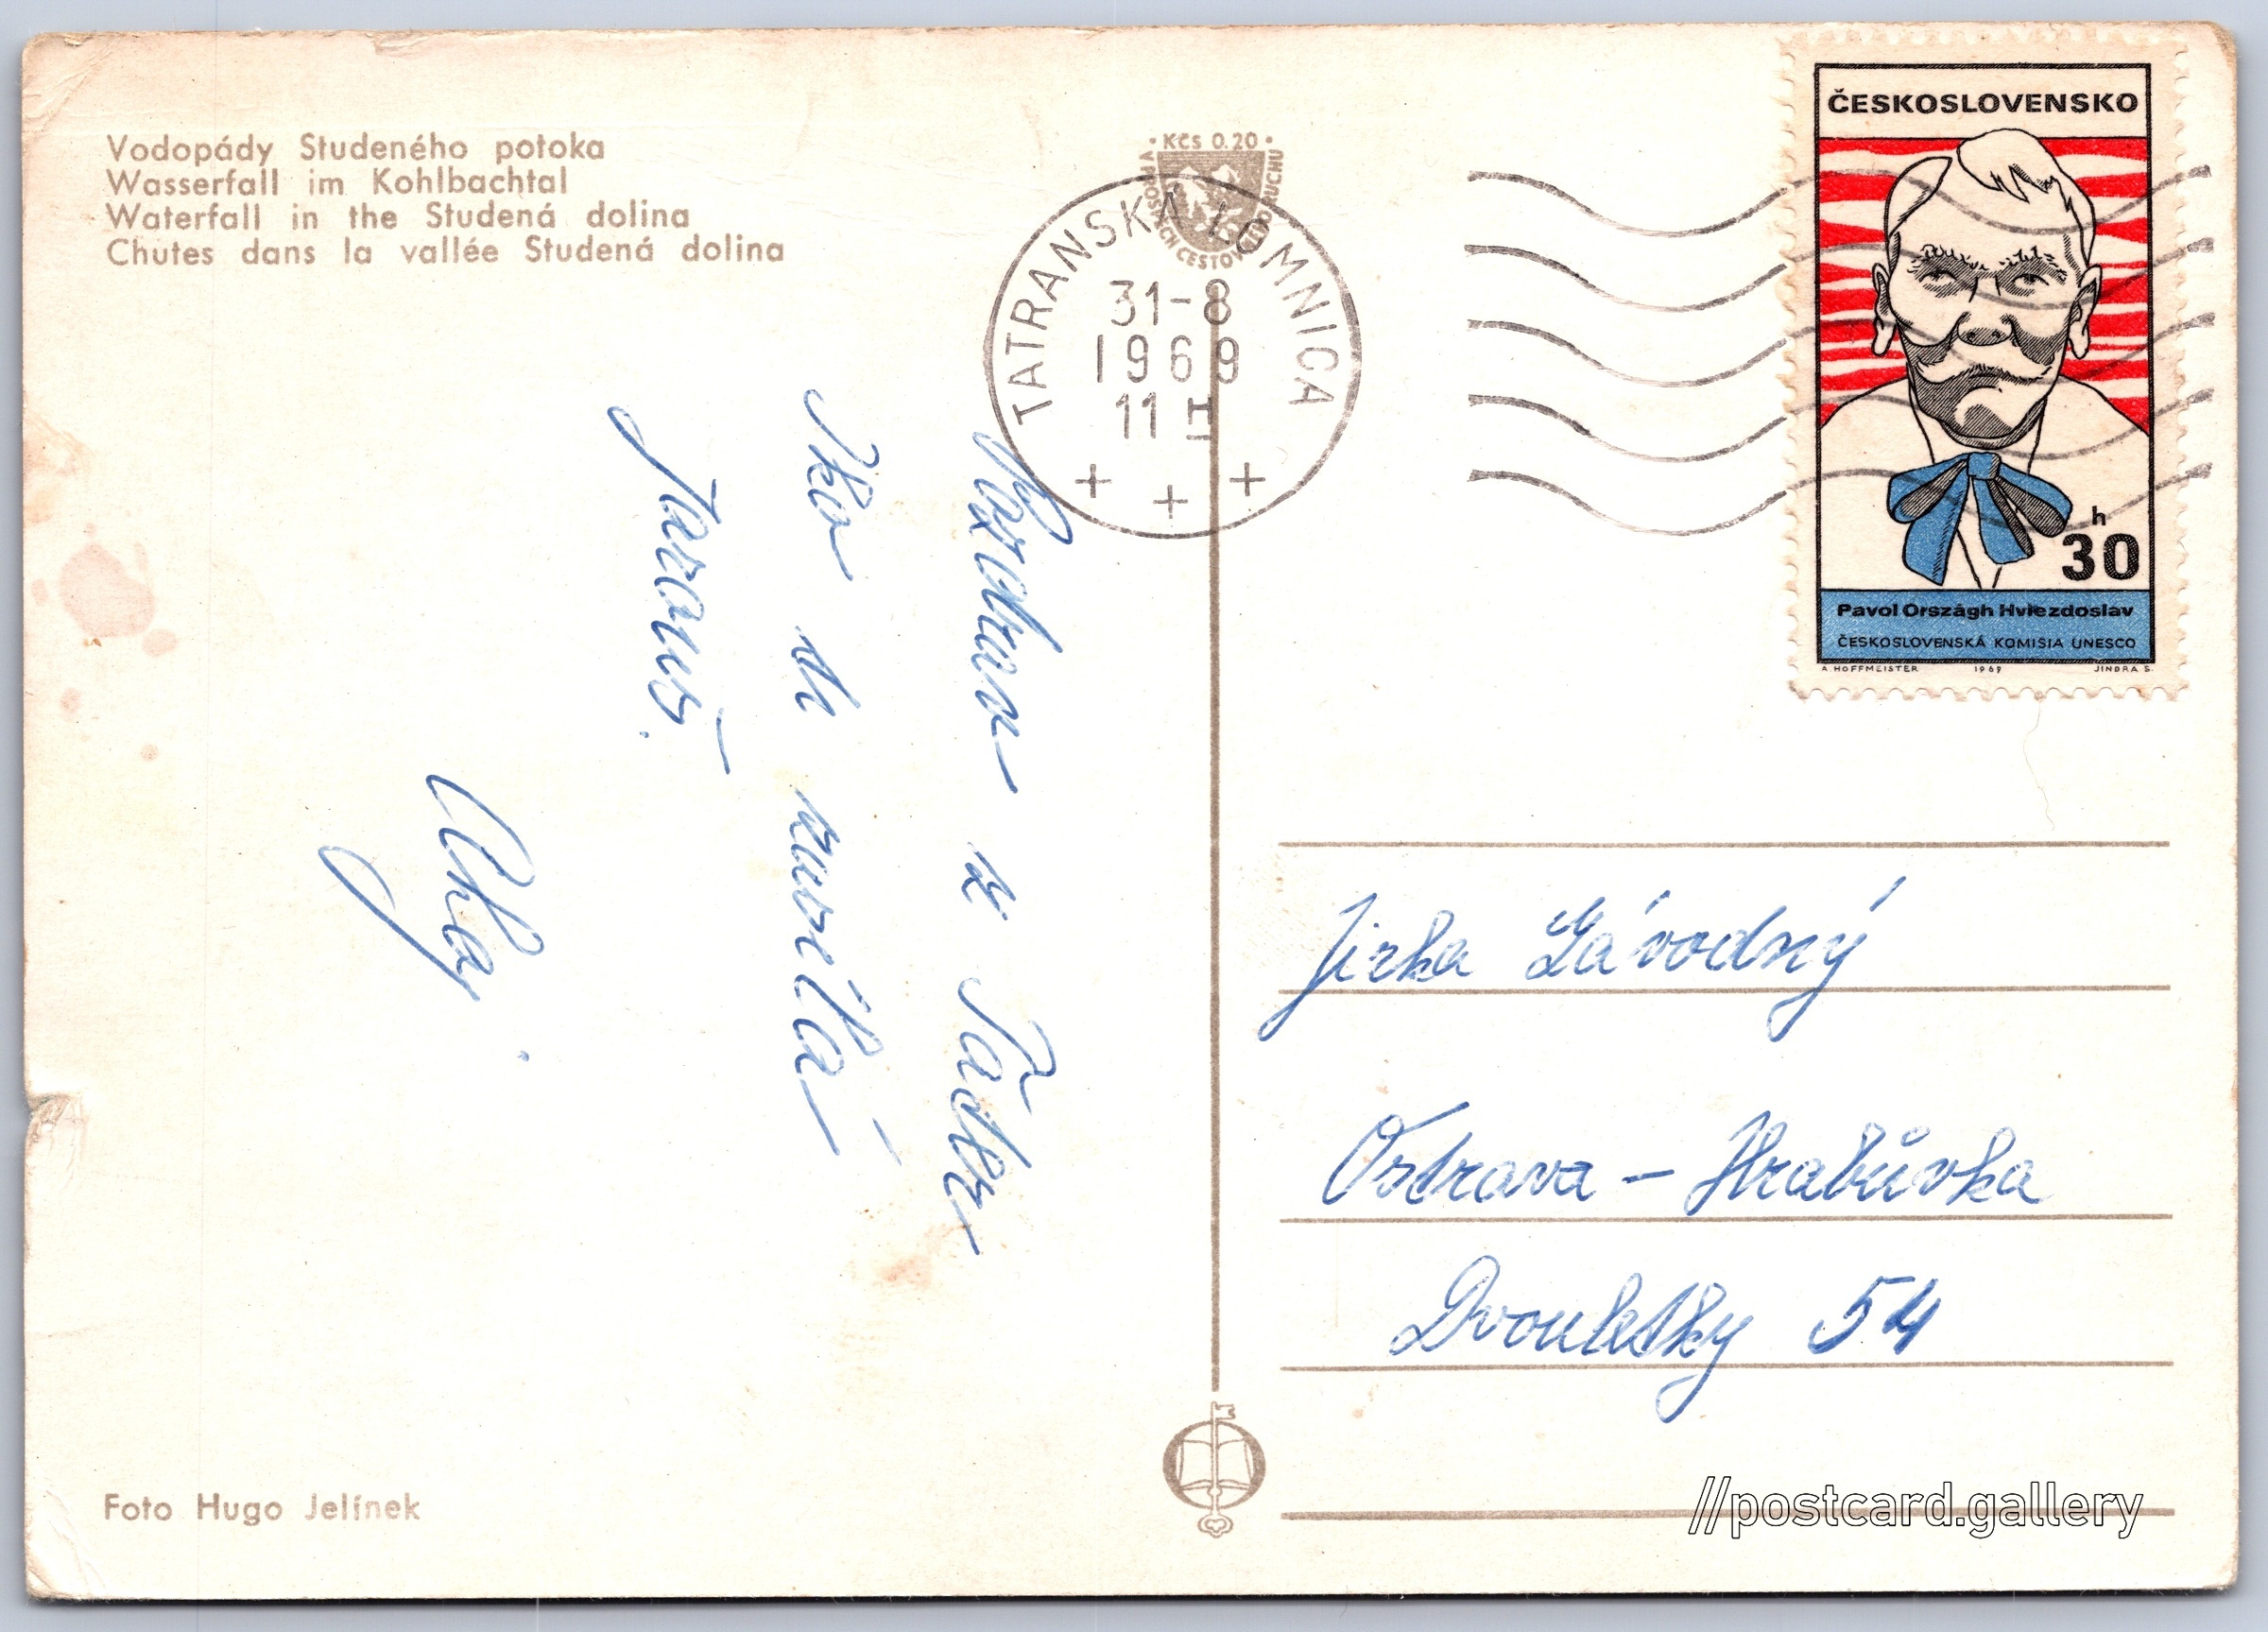 Vodopády Studeného potoka
Wasserfall im Kohlbachtal
Waterfall in the Studená dolina
Chutes dans la vallée Studená dolina
Kčs 0.20
TATRANSKÁ LOMNICA
31-8
1969
11 H
ČESKOSLOVENSKO
h
30
Pavol Országh Hviezdoslav
ČESKOSLOVENSKÁ KOMISIA UNESCO
A. HOFFMEISTER 1969 JINDRA S.
Pozdrav z Tater
Ti
Ahoj.
Jirka Závodný
Ostrava - Hrabůvka
Dvouletky 54
Foto Hugo Jelínek
//postcard.gallery